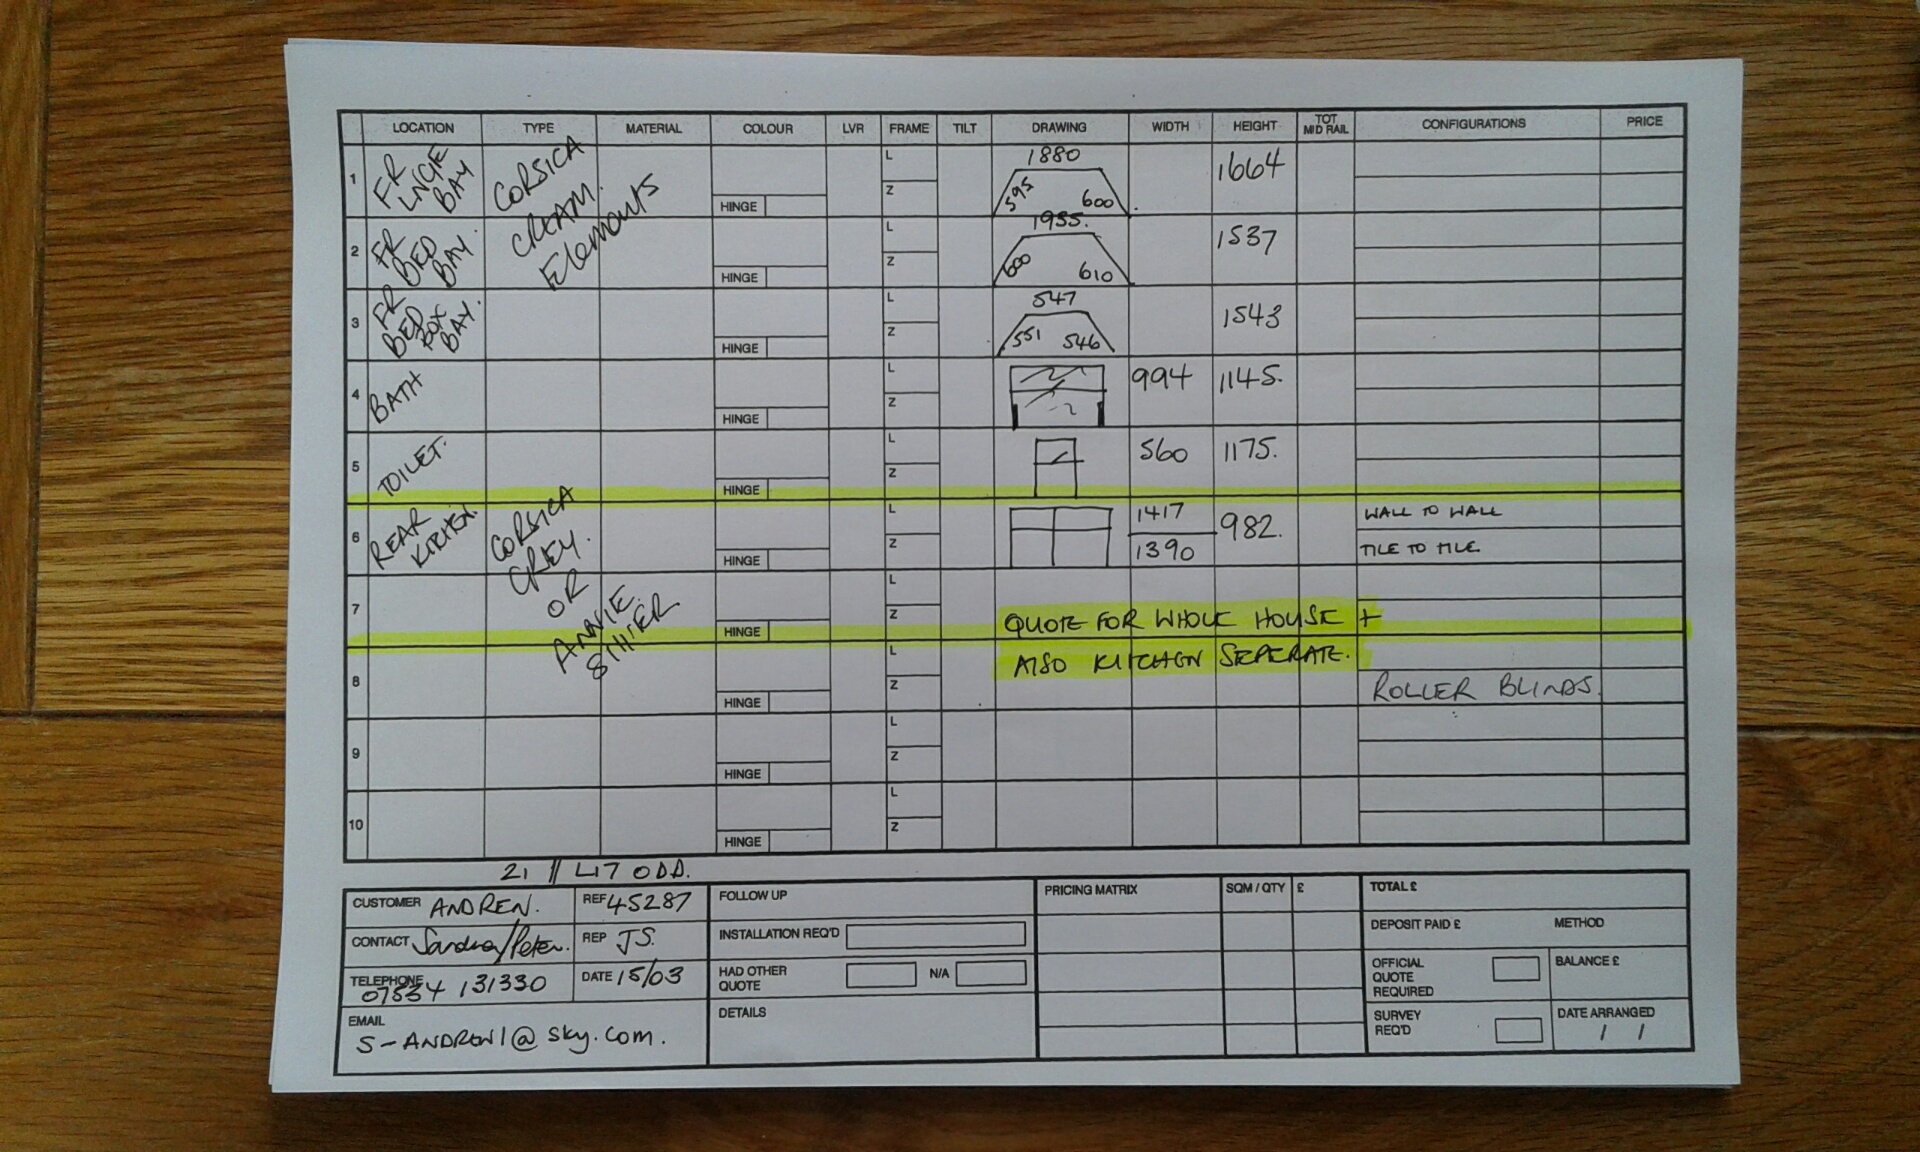 LOCATION TYPE MATERIAL COLOUR LVR FRAME TILT DRAWING WIDTH HEIGHT TOT MID RAIL CONFIGURATIONS PRICE
1 FR LNGE BAY CORSICA CREAM. HINGE L Z 1880 595 600 1664
2 FR BED BAY. HINGE L Z 1955. 600 610 1537
3 FR BED BOX BAY. HINGE L Z 547 551 546 1543
4 BATH HINGE L Z 994 1145.
5 TOILET. HINGE L Z 560 1175.
6 REAR KITCHEN. CORSICA GREY. OR HINGE L Z 1417 982. WALL TO WALL
1390 TILE TO TILE
7 HINGE L Z QUOTE FOR WHOLE HOUSE +
8 HINGE L Z ALSO KITCHEN SEPERATE.
ROLLER BLINDS.
9 HINGE L Z
10 HINGE L Z
21
CUSTOMER ANDREN. REF 45287
CONTACT Sandra/Peter. REP JS.
TELEPHONE 07534 131330 DATE 15/03
EMAIL
S-ANDREN1@sky.com.
FOLLOW UP
INSTALLATION REQ'D
HAD OTHER QUOTE N/A
DETAILS
PRICING MATRIX SQM / QTY £
TOTAL £
DEPOSIT PAID £ METHOD
OFFICIAL QUOTE REQUIRED BALANCE £
SURVEY REQ'D DATE ARRANGED
/ /